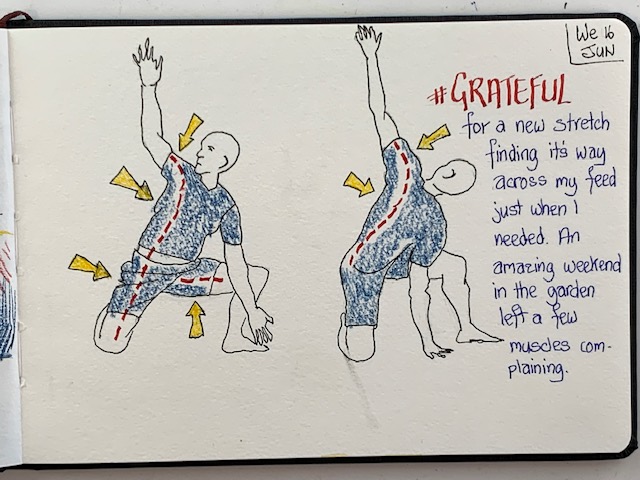 We 16
JUN
#GRATEFUL
for a new stretch
finding it's way
across my feed
just when I
needed. An
amazing weekend
in the garden
left a few
muscles com-
plaining.